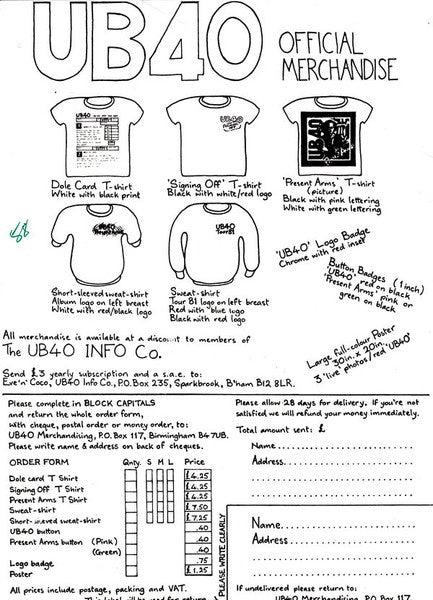 UB40
OFFICIAL
MERCHANDISE
UB40
UB40
UB40
Dole Card T-shirt
White with black print
'Signing Off' T-shirt
Black with white/red logo
'Present Arms' T-shirt
(picture)
Black with pink lettering
White with green lettering
UB40
Tour 81
'UB40' Logo Badge
Chrome with red inset
Button Badges (1 inch)
'UB40' red on black
'Present Arms' pink or
green on black
Short-sleeved sweat-shirt
Album logo on left breast
White with red/black logo
Sweat-shirt
Tour 81 logo on left breast
Red with blue logo
Black with red logo
Large full-colour Poster
30in. x 20in.
3 'live' photos/red 'UB40'
All merchandise is available at a discount to members of
The UB40 INFO Co.
Send £3 yearly subscription and a s.a.e. to:
Eve 'n' Coco, UB40 Info Co., P.O. Box 235, Sparkbrook, B'ham B12 8LR.
Please complete in BLOCK CAPITALS
and return the whole order form,
with cheque, postal order or money order, to:
UB40 Merchandising, P.O. Box 117, Birmingham B4 7UB.
Please write name & address on back of cheques.
Please allow 28 days for delivery. If you're not
satisfied we will refund your money immediately.
Total amount sent: £
Name
Address
ORDER FORM Qnty. S M L Price
Dole card T Shirt £4.25
Signing Off T Shirt £4.25
Present Arms T Shirt £4.25
Sweat-shirt £7.50
Short-sleeved sweat-shirt £7.25
UB40 button .40
Present Arms button (Pink) .40
(Green) .40
Logo badge .75
Poster £1.25
All prices include postage, packing and VAT.
This label will be used for return
PLEASE WRITE CLEARLY
Name
Address
If undelivered please return to:
UB40 Merchandising, P.O. Box 117